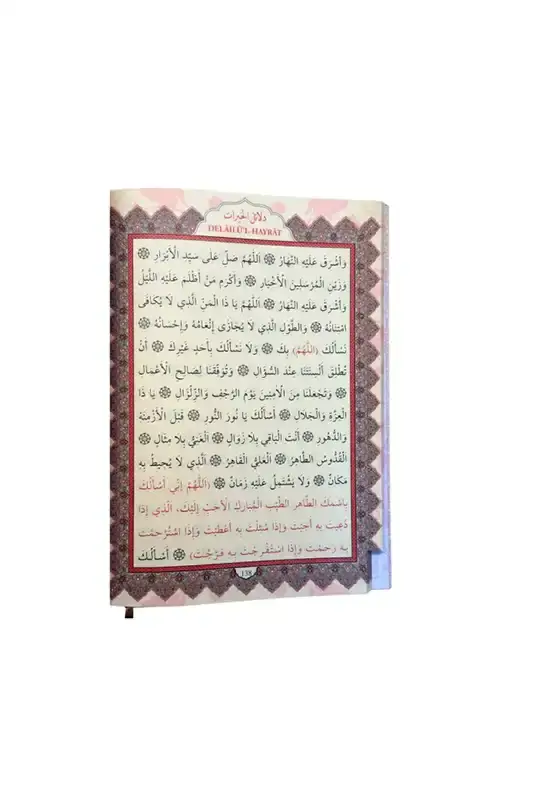 دلائل الخيرات
DELÂİLÜ'L-HAYRÂT
وَأَشْرَقَ عَلَيْهِ النَّهَارُ ۞ اَللّٰهُمَّ صَلِّ عَلٰى سَيِّدِ الْاَبْرَارِ ۞
وَزَيْنِ الْمُرْسَلِينَ الْاَخْيَارِ ۞ وَاَكْرَمِ مَنْ اَظْلَمَ عَلَيْهِ اللَّيْلُ
وَاَشْرَقَ عَلَيْهِ النَّهَارُ ۞ اَللّٰهُمَّ يَا ذَا الْمَنِّ الَّذِي لَا يُكَافٰى
امْتِنَانُهُ ۞ وَالطَّوْلِ الَّذِي لَا يُجَازٰى اِنْعَامُهُ وَاِحْسَانُهُ ۞
نَسْأَلُكَ (اَللّٰهُمَّ) بِكَ ۞ وَلَا نَسْأَلُكَ بِاَحَدٍ غَيْرِكَ ۞ اَنْ
تُطْلِقَ اَلْسِنَتَنَا عِنْدَ السُّؤَالِ ۞ وَتُوَفِّقَنَا لِصَالِحِ الْاَعْمَالِ
۞ وَتَجْعَلَنَا مِنَ الْاٰمِنِينَ يَوْمَ الرَّجْفِ وَالزِّلْزَالِ ۞ يَا ذَا
الْعِزَّةِ وَالْجَلَالِ ۞ اَسْأَلُكَ يَا نُورَ النُّورِ ۞ قَبْلَ الْاَزْمِنَةِ
وَالدُّهُورِ ۞ اَنْتَ الْبَاقِي بِلَا زَوَالٍ ۞ اَلْغَنِيُّ بِلَا مِثَالٍ ۞
اَلْقُدُّوسُ الطَّاهِرُ ۞ اَلْعَلِيُّ الْقَاهِرُ ۞ اَلَّذِي لَا يُحِيطُ بِهِ
مَكَانٌ ۞ وَلَا يَشْتَمِلُ عَلَيْهِ زَمَانٌ ۞ (اَللّٰهُمَّ اِنِّي اَسْأَلُكَ
بِاسْمِكَ الطَّاهِرِ الطَّيِّبِ الْمُبَارَكِ الْاَحَبِّ اِلَيْكَ، الَّذِي اِذَا
دُعِيتَ بِهِ اَجَبْتَ وَاِذَا سُئِلْتَ بِهِ اَعْطَيْتَ وَاِذَا اسْتُرْحِمْتَ
بِهِ رَحِمْتَ وَاِذَا اسْتُفْرِجْتَ بِهِ فَرَّجْتَ) ۞ اَسْأَلُكَ
138